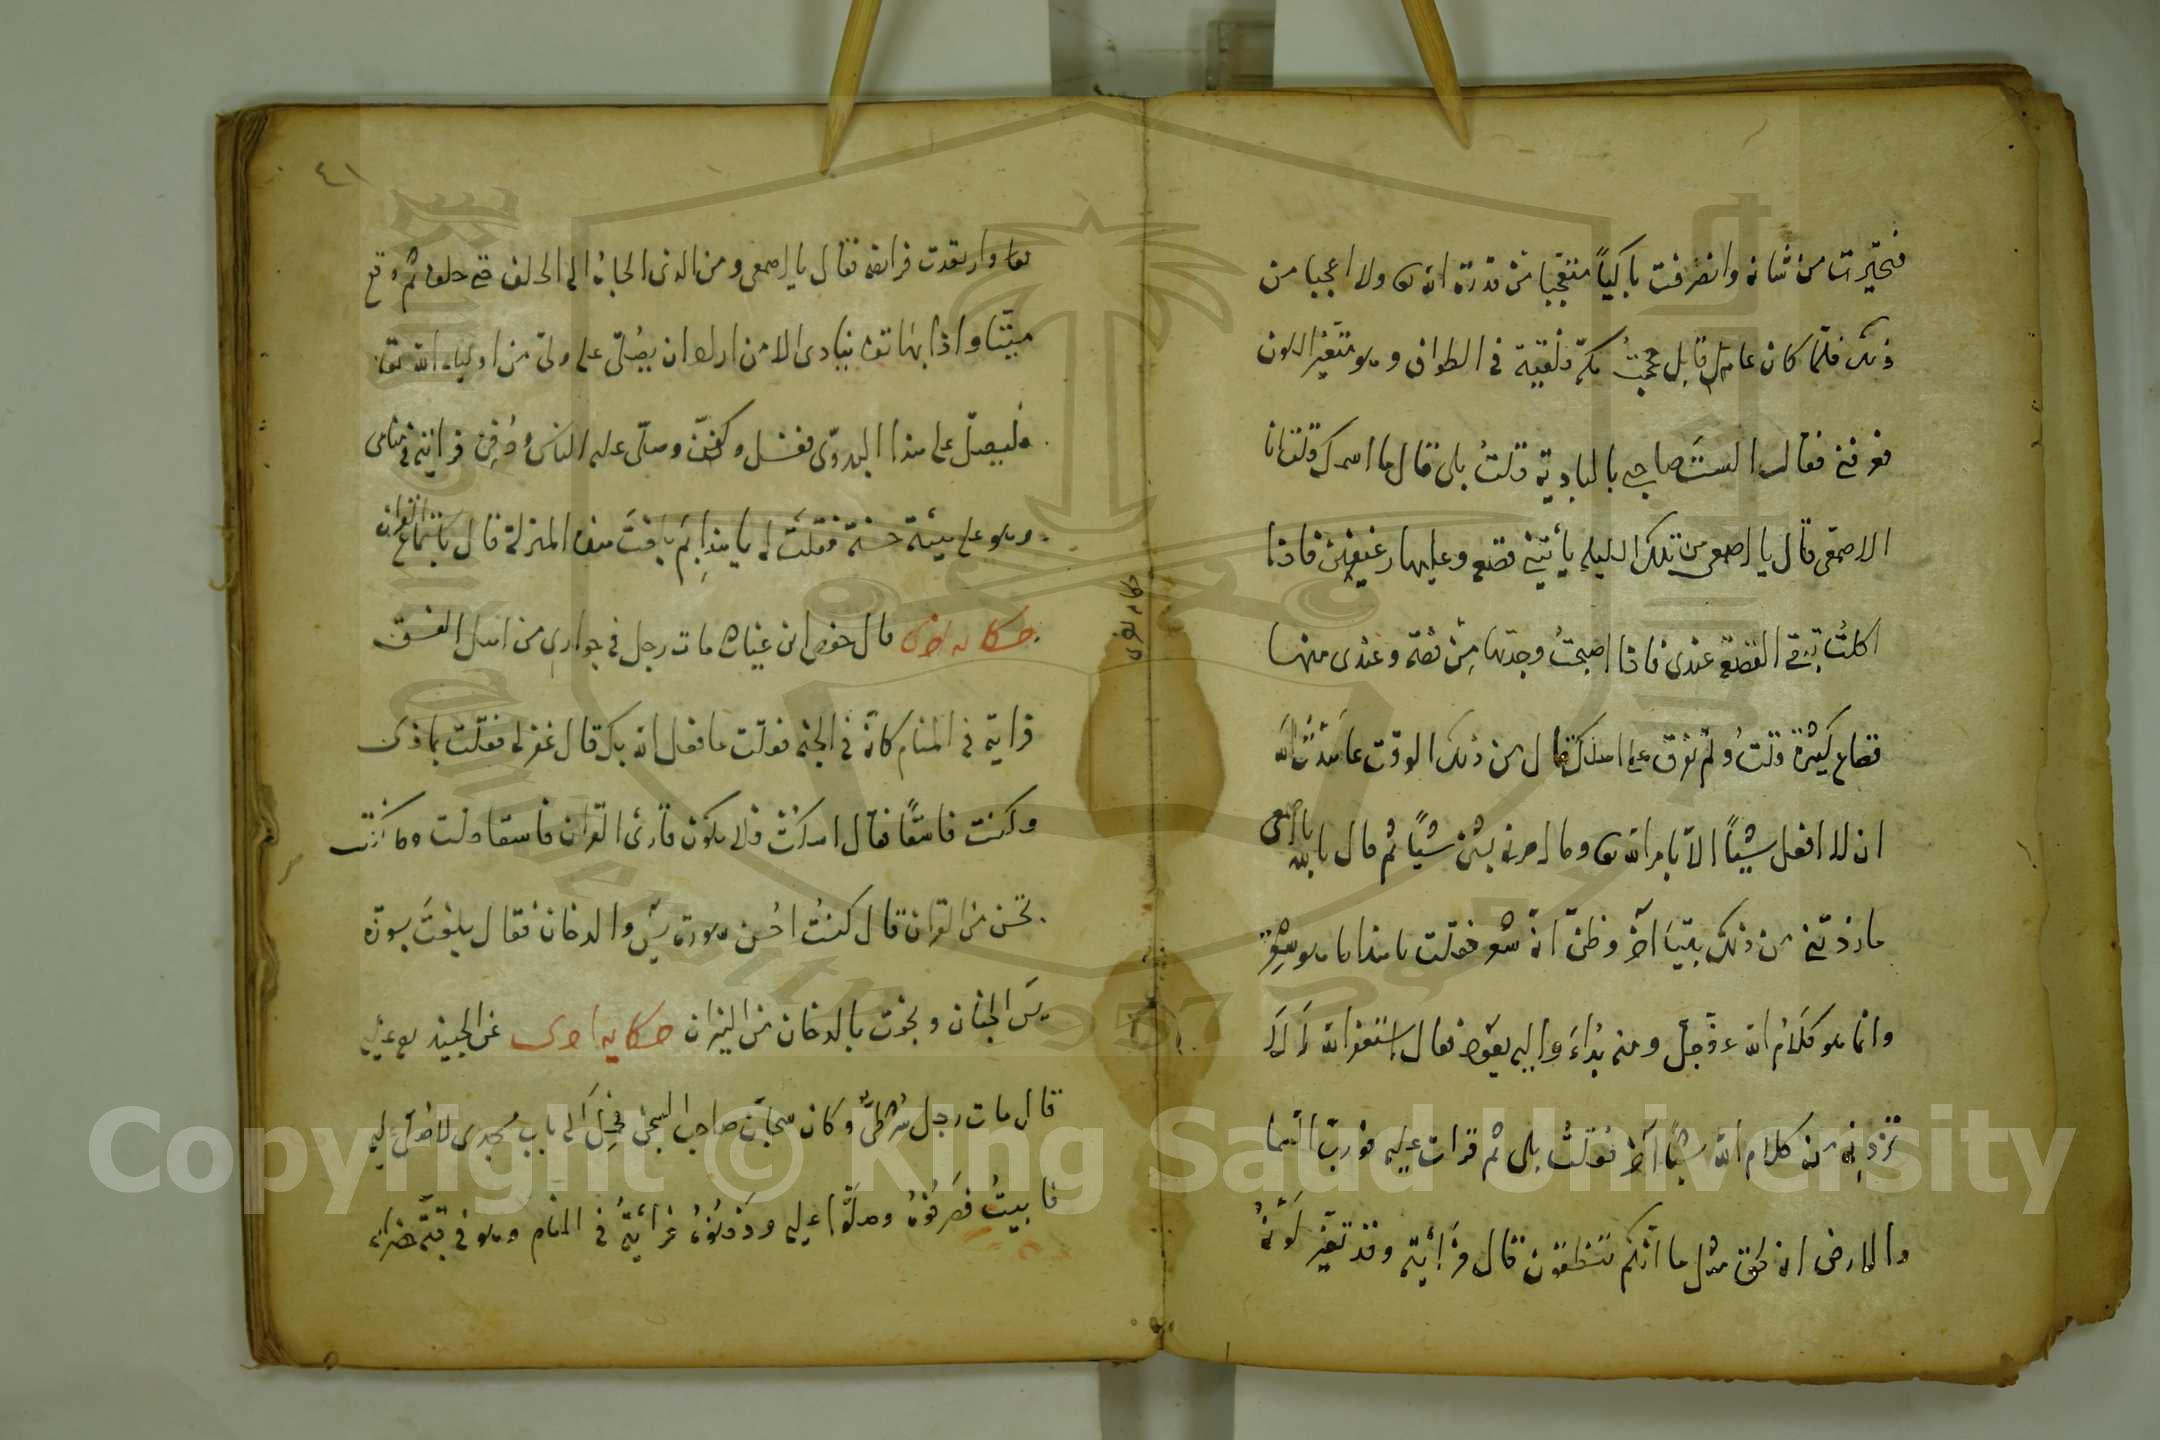 فتحيّرت من شانه وانصرفت باكياً متعجّبا من قدرة الله تعالى ولا اعجبا من
ذلك فلمّا كان عام قابل حججتُ مكّة فلقيته في الطواف وهو متغيّر اللون
فعرفني فقال الستَ صاحبي بالبادية قلتُ بلى قال ما اسمك قلت انا
الاصمعى قال يا اصمعى من تلك الليلة يأتيني قصعه وعليها رغيفين فاذا
اكلتُ تبقى القصعة عندى فاذا اصبحتُ وجدتها مِنْ فضّة وعندى منها
قصاع كثيرة قلتُ ولم تفرق على اهلك قال من ذلك الوقت عاهَدْتُ اللهَ
ان لا افعل شيئاً الاّ بامر الله تعالى وما امرنى بشئ شيئاً ثم قال بالله يا اصمعى
ما زدتنى من ذلك بيتاً آخر وظنّ انّه شعر فقلت يا هذا ما هو شعر
وانما هو كلامُ الله عزّ وجلّ ومنه بداءَ واليه يعود فقال استغفر الله
تزدنى من كلام الله شيئاً آخر فقلتُ بلى ثم قرات عليه فوربّ السّما
والارض انه لحق مثل ما انّكم تنطقون قال فرأيته وقد تغيّر لَوْنُهُ
وارتعدت فرائصه فقال يا اصمعى ومن الذى الجاه الى الحلف حتى حلف ثم وقع
ميّتا واذا بهاتف ينادى الا من اراد ان يصُلّى على ولىّ من اولياء الله تعالى
فليصلّ على هذا البدوّى فغسّل وكفّن وصلّى عليه الناس ودُفِن فرايته في منامى
وهو على هيئة حسنة فقلتَ له يا هذا بِمَ بلغتَ هذه المنزلة قال باستماع القران
حكايه اخرى قال حفص ابن غياث مات رجل في جوارى من اهل الفسق
فرايته في المنام كانّه في الجنه فقلت ما فعل الله بك قال غفر لى فقلت بماذى
وكنت فاسقًا فقال اسكت ولا يكون قارئ القران فاسقا قلت وما كنت
تحسن من القران قال كنتُ احُسن سورة يسَ والدخان فقال بلغتَ بسورة
يسَ الجنان ونجوت بالدخان من النيران حكايه اخرى عن الجنيد رضى عنه
قال مات رجل شرطىٌّ وكان سجّان صاحب السجن فحمل الى باب مسجدى لاصلى عليه
فابيتُ فصرفوهُ وصلّوا عليه ودفنوُه فرأيتهُ في المنام وهو في قبّة خضراء
حكايه اخرى
٤١
Copyright © King Saud University
1957